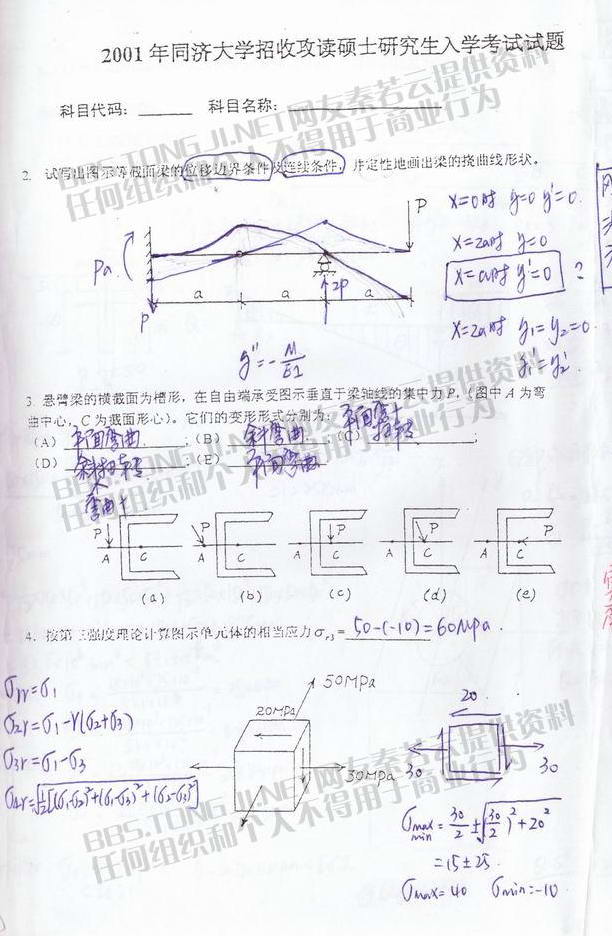 2001年同济大学招收攻读硕士研究生入学考试试题
科目代码：______ 科目名称：______
BBS.TONGJI.NET网友秦若云提供资料
任何组织和个人不得用于商业行为
2. 试写出图示等截面梁的位移边界条件及连续条件，并定性地画出梁的挠曲线形状。
P
x=0时 y=0 y'=0.
x=2a时 y=0
Pa.
x=a时 y'=0 ?
a a a
2P
P
x=2a时 y₁=y₂=0.
y₁'=y₂'
y''=-M/EI
3. 悬臂梁的横截面为槽形，在自由端承受图示垂直于梁轴线的集中力P，(图中A为弯
曲中心，C为截面形心)。它们的变形形式分别为：平面弯+
(A) 平面弯曲 ；(B) 斜弯曲 ；(C) 扭转 ；
(D) 斜扭转 ；(E) 平面弯曲
弯曲+
BBS.TONGJI.NET网友秦若云提供资料
任何组织和个人不得用于商业行为
P P P P P
A C A C A C A C A C
(a) (b) (c) (d) (e)
4. 按第三强度理论计算图示单元体的相当应力σr3= 50-(-10)=60MPa.
σ1r=σ₁
50MPa
20MPa
20.
σ2r=σ₁-γ(σ₂+σ₃)
30MPa
30 30
σ3r=σ₁-σ₃
σ4r=√½[(σ₁-σ₂)²+(σ₁-σ₃)²+(σ₂-σ₃)²]
BBS.TONGJI.NET网友秦若云提供资料
任何组织和个人不得用于商业行为
σmax min=30/2±√(30/2)²+20²
=15±25.
σmax=40 σmin=-10